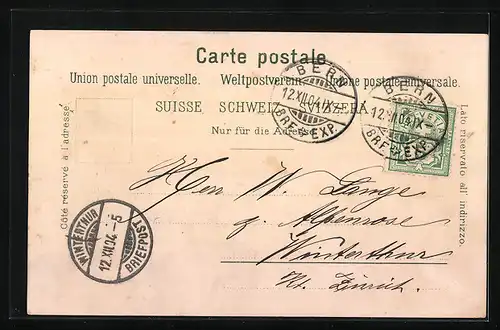 Carte postale.
Union postale universelle. Weltpostverein. Unione postale universale.
SUISSE SCHWEIZ SVIZZERA
Nur für die Adresse
Côté réservé à l'adresse
Lato riservato all' indirizzo.
BERN
12.XII.04.IX-
BRF. EXP.
BERN
12.XII.04.IX-
BRF. EXP.
Herrn W. Lange
z. Alpenrose
Winterthur
Kt. Zürich.
WINTERTHUR
12.XII.04.-5
BRIEFPOST